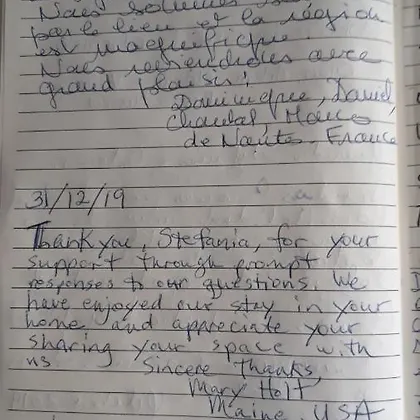 Nous sommes
par le lieu et la région
est magnifique.
Nous reviendrons avec
grand plaisir!
Dominique, Daniel,
Chantal, Marco
de Nantes, France
31/12/19
Thank you, Stefania, for your
support through prompt
responses to our questions. We
have enjoyed our stay in your
home and appreciate your
sharing your space with
us Sincere thanks,
Mary Holt
Maine, USA